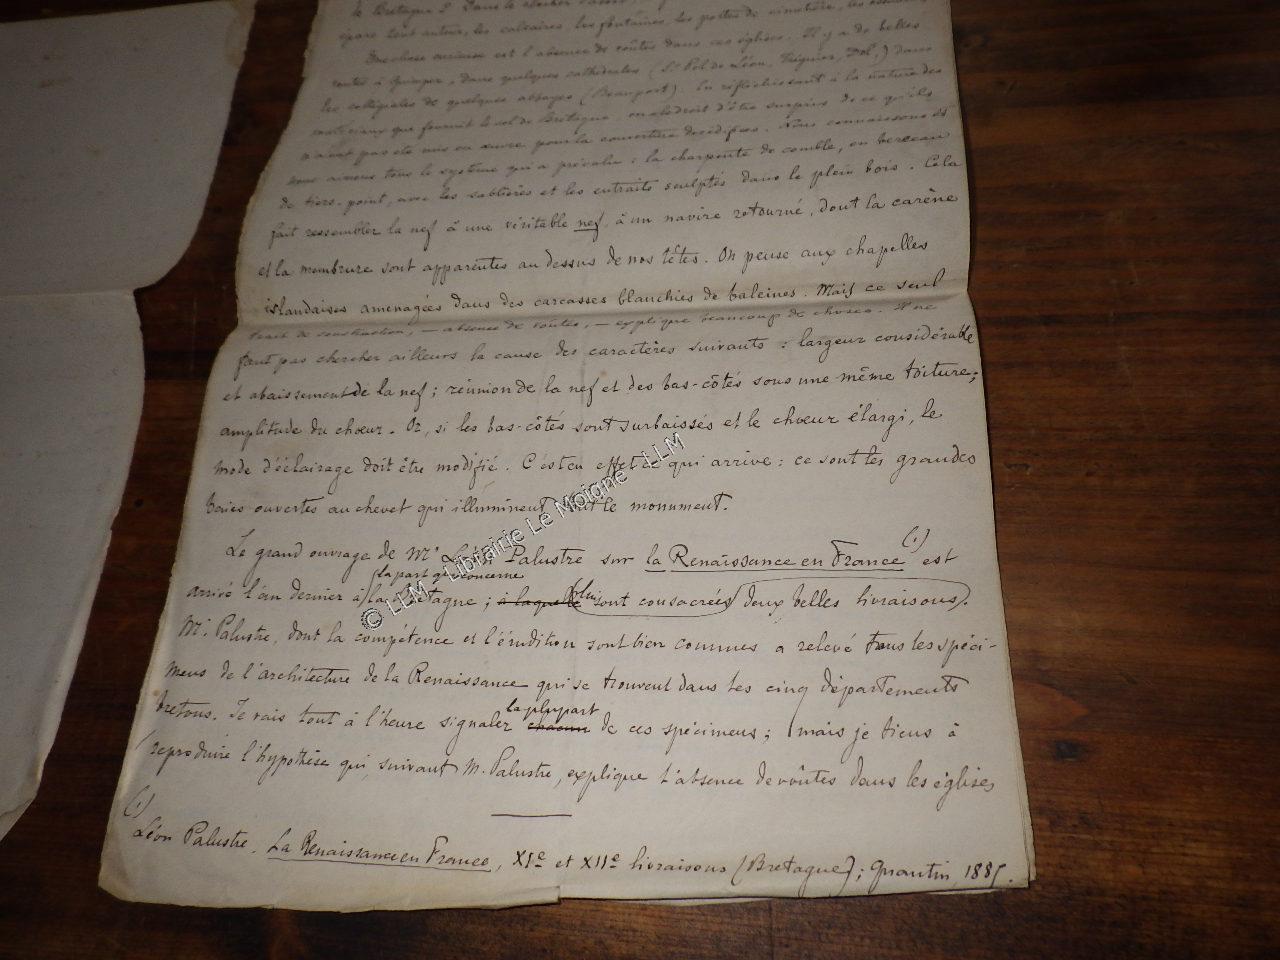 le Bretagne ? Dans le clocher
épars tout autour, les calvaires, les fontaines, les portes de cimetière, les
Une chose curieuse est l'absence de voûtes dans ces églises. Il y a de belles
voûtes à Quimper, dans quelques cathédrales (St Pol de Léon, Tréguier, Dol,) dans
les collégiales de quelques abbayes (Beauport). En réfléchissant à la nature des
matériaux que fournit le sol de Bretagne, on a le droit d'être surpris de ce qu'ils
n'aient pas été mis en œuvre pour la couverture des édifices. Nous connaissons et
nous aimons tous le système qui a prévalu : la charpente de comble, en berceau
de tiers-point, avec les sablières et les entraits sculptés dans le plein bois. Cela
fait ressembler la nef à une véritable nef, à un navire retourné, dont la carène
et la membrure sont apparentes au dessus de nos têtes. On pense aux chapelles
islandaises aménagées dans des carcasses blanchies de baleines. Mais ce seul
trait de construction, — absence de voûtes, — explique beaucoup de choses. Il ne
faut pas chercher ailleurs la cause des caractères suivants : largeur considérable
et abaissement de la nef ; réunion de la nef et des bas-côtés sous une même toiture ;
amplitude du chœur. Or, si les bas-côtés sont surbaissés et le chœur élargi, le
mode d'éclairage doit être modifié. C'est en effet ce qui arrive : ce sont les grandes
baies ouvertes au chevet qui illuminent tout le monument.
Le grand ouvrage de Mr Léon Palustre sur la Renaissance en France (1) est
la part qui concerne
arrivé l'an dernier à la Bretagne ; à laquelle lui sont consacrées deux belles livraisons.
Mr. Palustre, dont la compétence et l'érudition sont bien connues a relevé tous les spéci-
mens de l'architecture de la Renaissance qui se trouvent dans les cinq départements
la plupart
bretons. Je vais tout à l'heure signaler chacun de ces spécimens ; mais je tiens à
reproduire l'hypothèse qui, suivant M. Palustre, explique l'absence de voûtes dans les églises
(1)
Léon Palustre. La Renaissance en France, XIe et XIIe livraisons (Bretagne) ; Quantin, 1885.
© LLM - Librairie Le Moigne - LLM